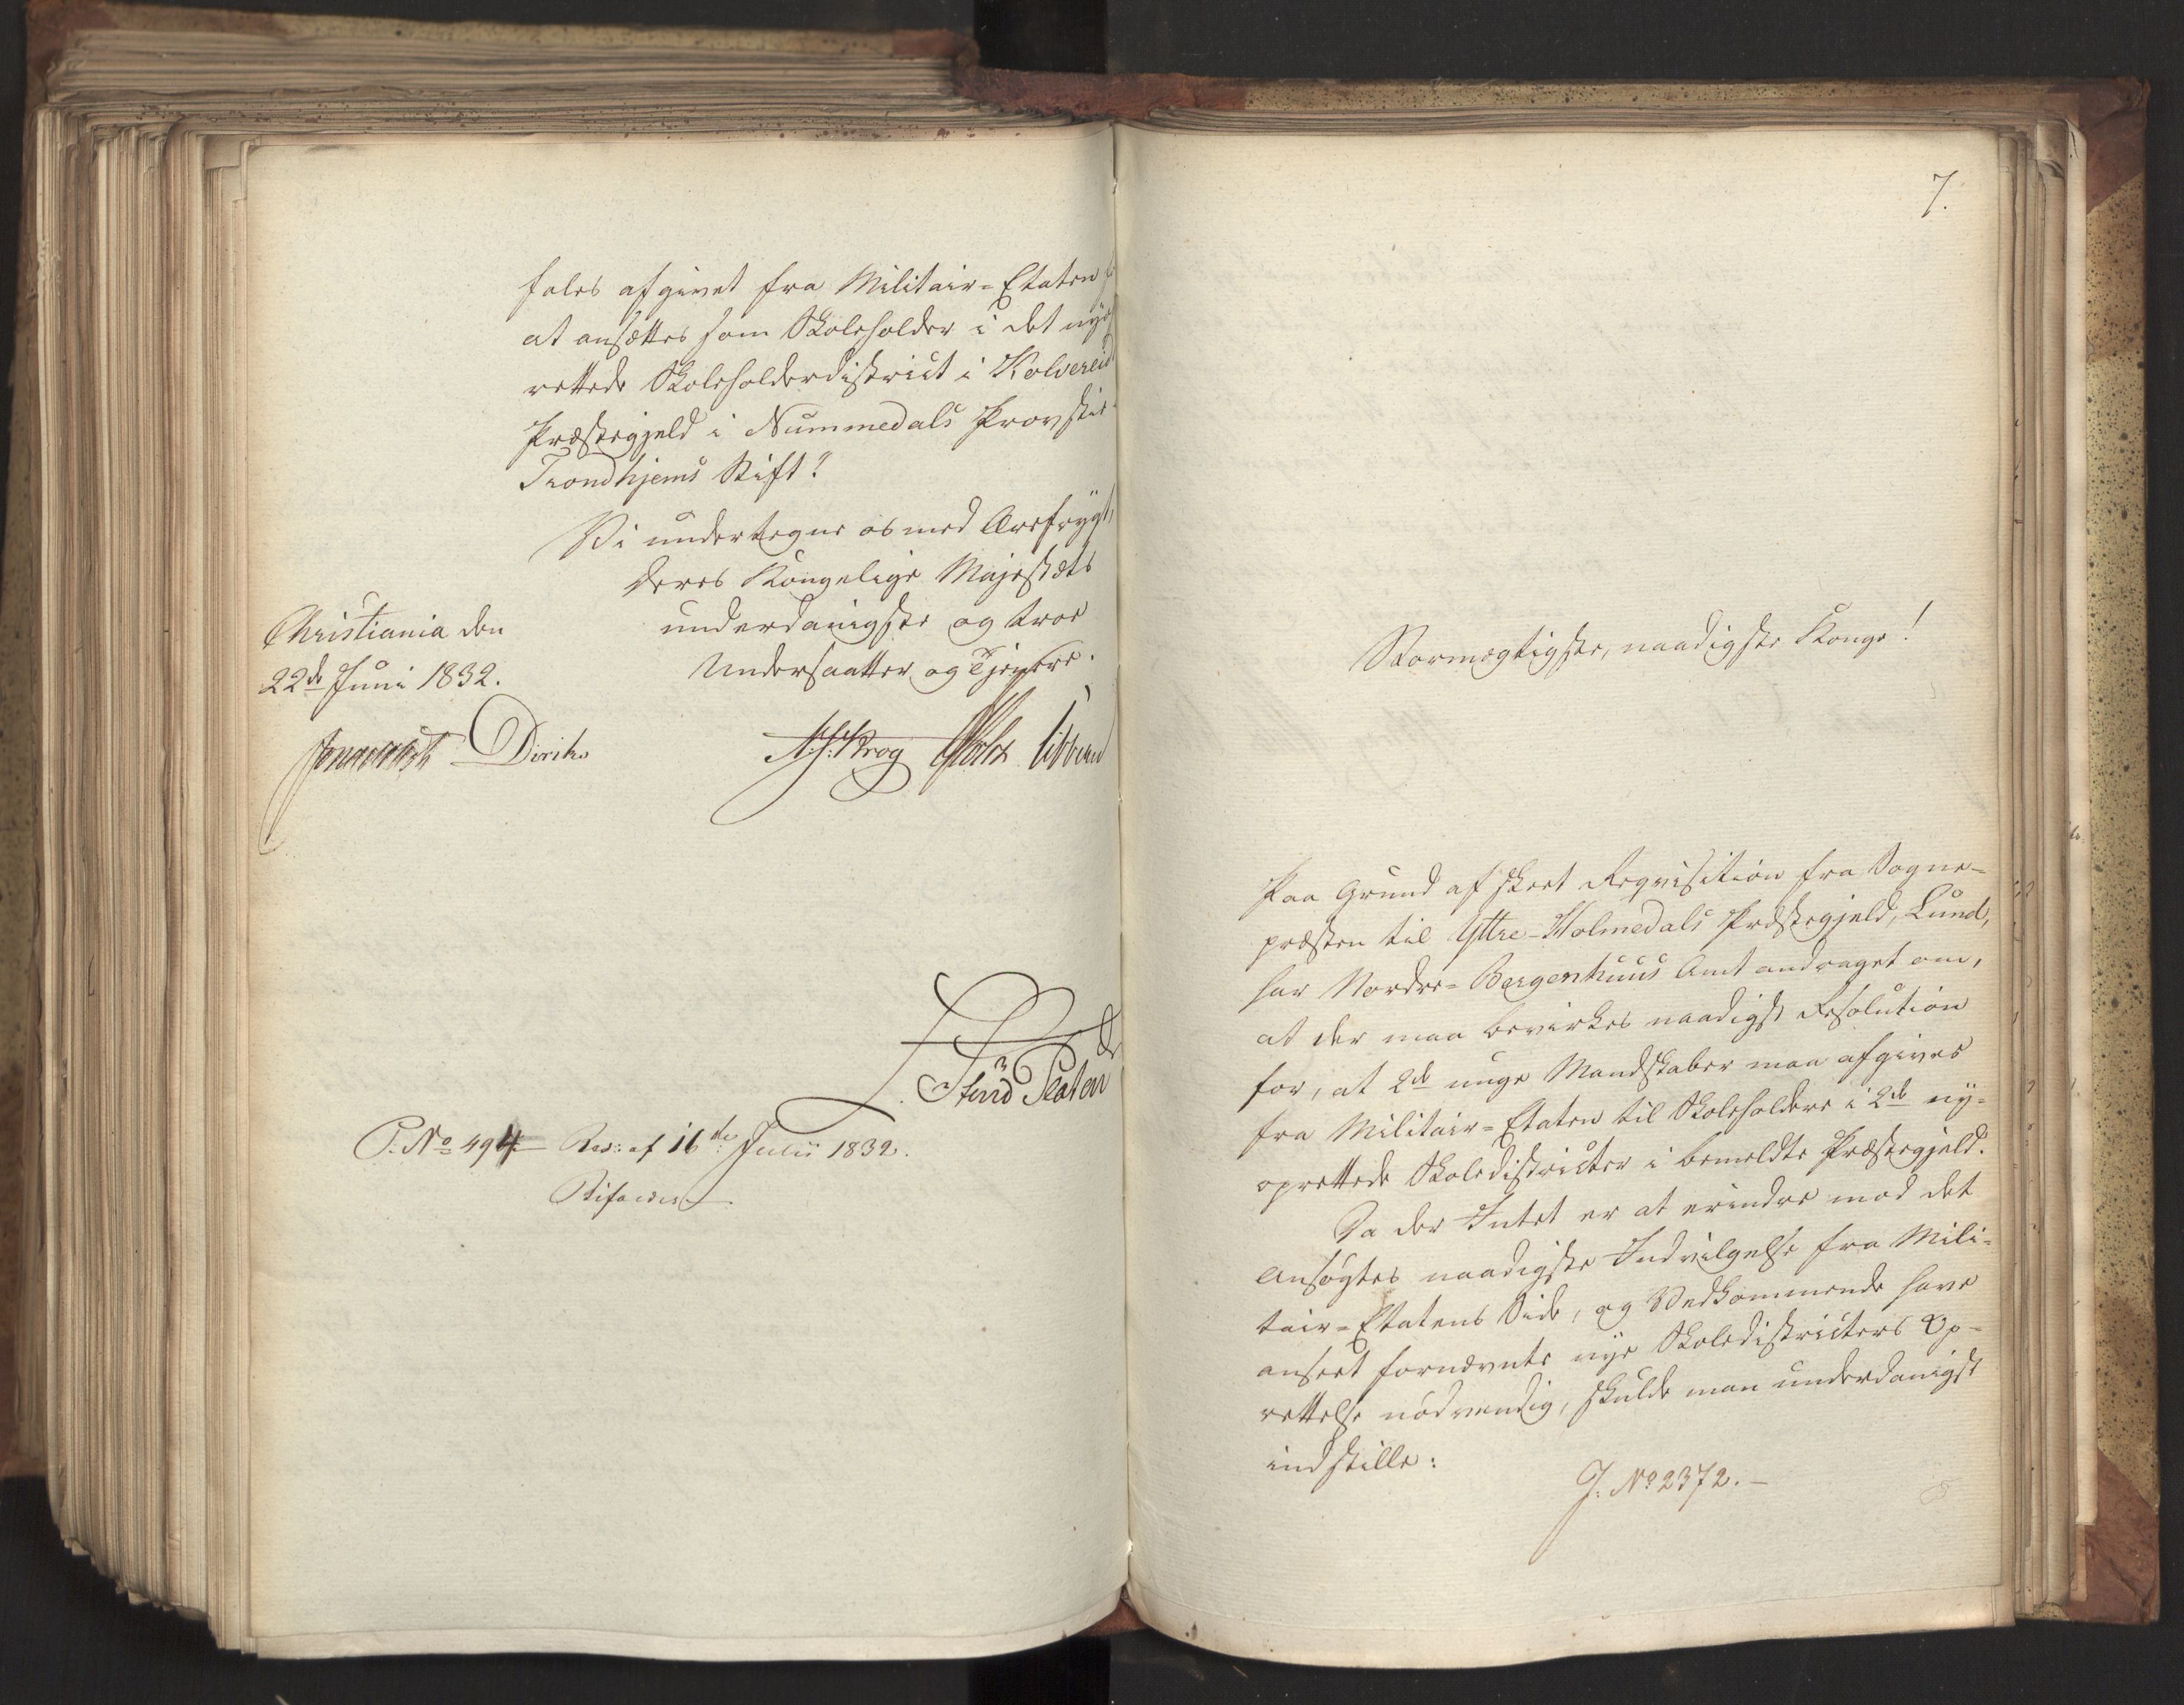 fales afgivet fra Militair-Etaten
at ansættes som Skoleholder i det nye
rettede Skoleholderdistrict i Kolvereid
Præstegjeld i Nummedals Provstie
Trondhjems Stift?
Vi undertegne os med Ærefrygt,
Deres Kongelige Majestæts
underdanigste og troe
Undersaatter og Tjenere.
Christiania den
22de Juni 1832.
Jonas Collett Diriks
Krog Holst Vibe
P. No 494 Res: af 16de Julii 1832.
Bifaldes
7.
Stormægtigste, naadigste Konge!
Paa Grund af skeet Reqvisition fra Sogne-
præsten til Yttre-Holmedals Præstegjeld, Lund,
har Nordre-Bergenhuus Amt andraget om,
at der maa bevirkes naadigst Resolution
for, at 2de unge Mandskaber maa afgives
fra Militair-Etaten til Skoleholdere i 2de ny-
oprettede Skoledistricter i bemeldte Præstegjeld.
Da der Intet er at erindre mod det
Ansøgtes naadigste Indvilgelse fra Mili-
tair-Etatens Side, og Vedkommende have
anseet fornævnte nye Skoledistricters Op-
rettelse nødvendig, skulde man underdanigst
indstille:
J. No 2372.-